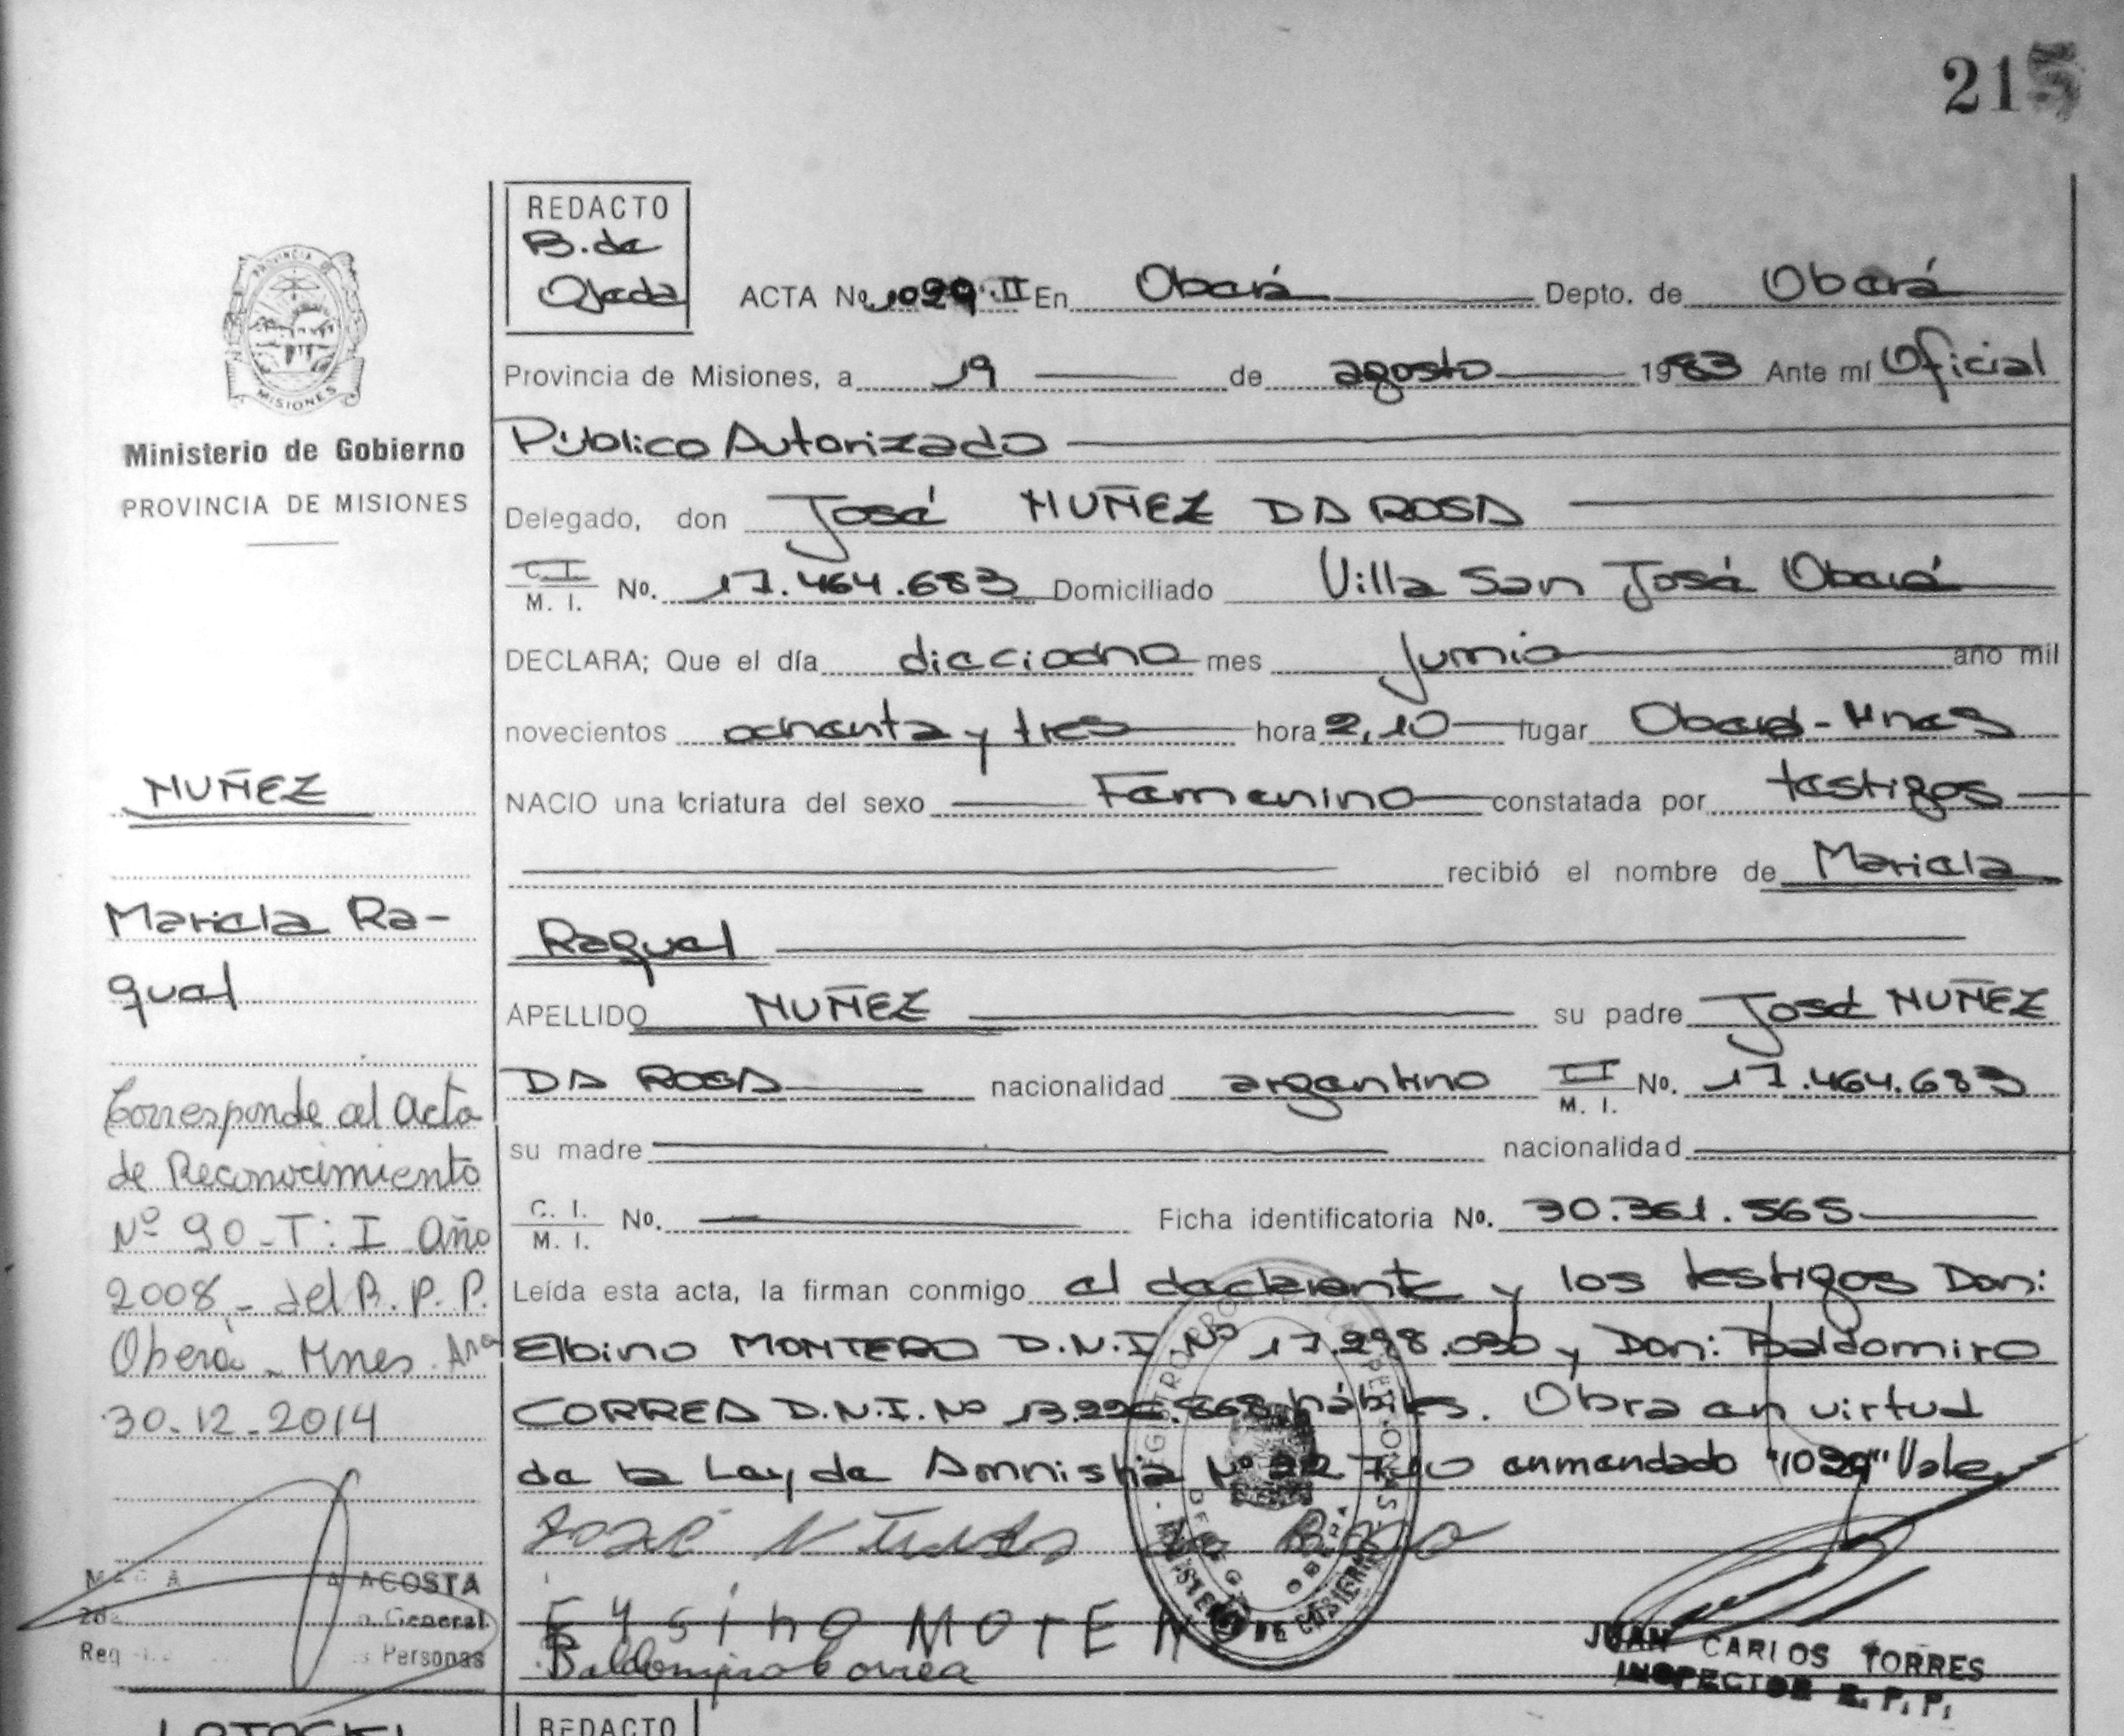 215
REDACTO
B. de
Ojeda
ACTA No 1029 II En Oberá Depto. de Oberá
Provincia de Misiones, a 19 de agosto 1983 Ante mí Oficial
Público Autorizado
Delegado, don José NUÑEZ DA ROSA
C.I. M. I. No. 17.464.683 Domiciliado Villa San José Oberá
DECLARA; Que el día dieciocho mes Junio año mil
novecientos ochenta y tres hora 2,10 lugar Oberá - Mnes
NACIO una criatura del sexo Femenino constatada por testigos
recibió el nombre de Mariela
Raquel
APELLIDO NUÑEZ su padre José NUÑEZ
DA ROSA nacionalidad argentino C.I. M. I. No. 17.464.683
su madre nacionalidad
C. I. M. I. No. Ficha identificatoria No. 30.361.565
Leída esta acta, la firman conmigo el declarante y los testigos Don:
Elbino MONTERO D.N.I. Nº 17.298.030 y Don: Baldomiro
CORREA D.N.I. Nº hábiles. Obra en virtud
de la Ley de Amnistia Nº enmendado "1029" Vale
José
Baldomiro Correa
JUAN CARLOS TORRES
INSPECTOR R. P. P.
PROVINCIA DE
MISIONES
Ministerio de Gobierno
PROVINCIA DE MISIONES
NUÑEZ
Mariela Ra-
quel
Corresponde al Acta
de Reconocimiento
Nº 90 - T: I Año
2008 - del R. P. P.
Oberá - Mnes
30-12-2014
ACOSTA
General
Personas
REDACTO